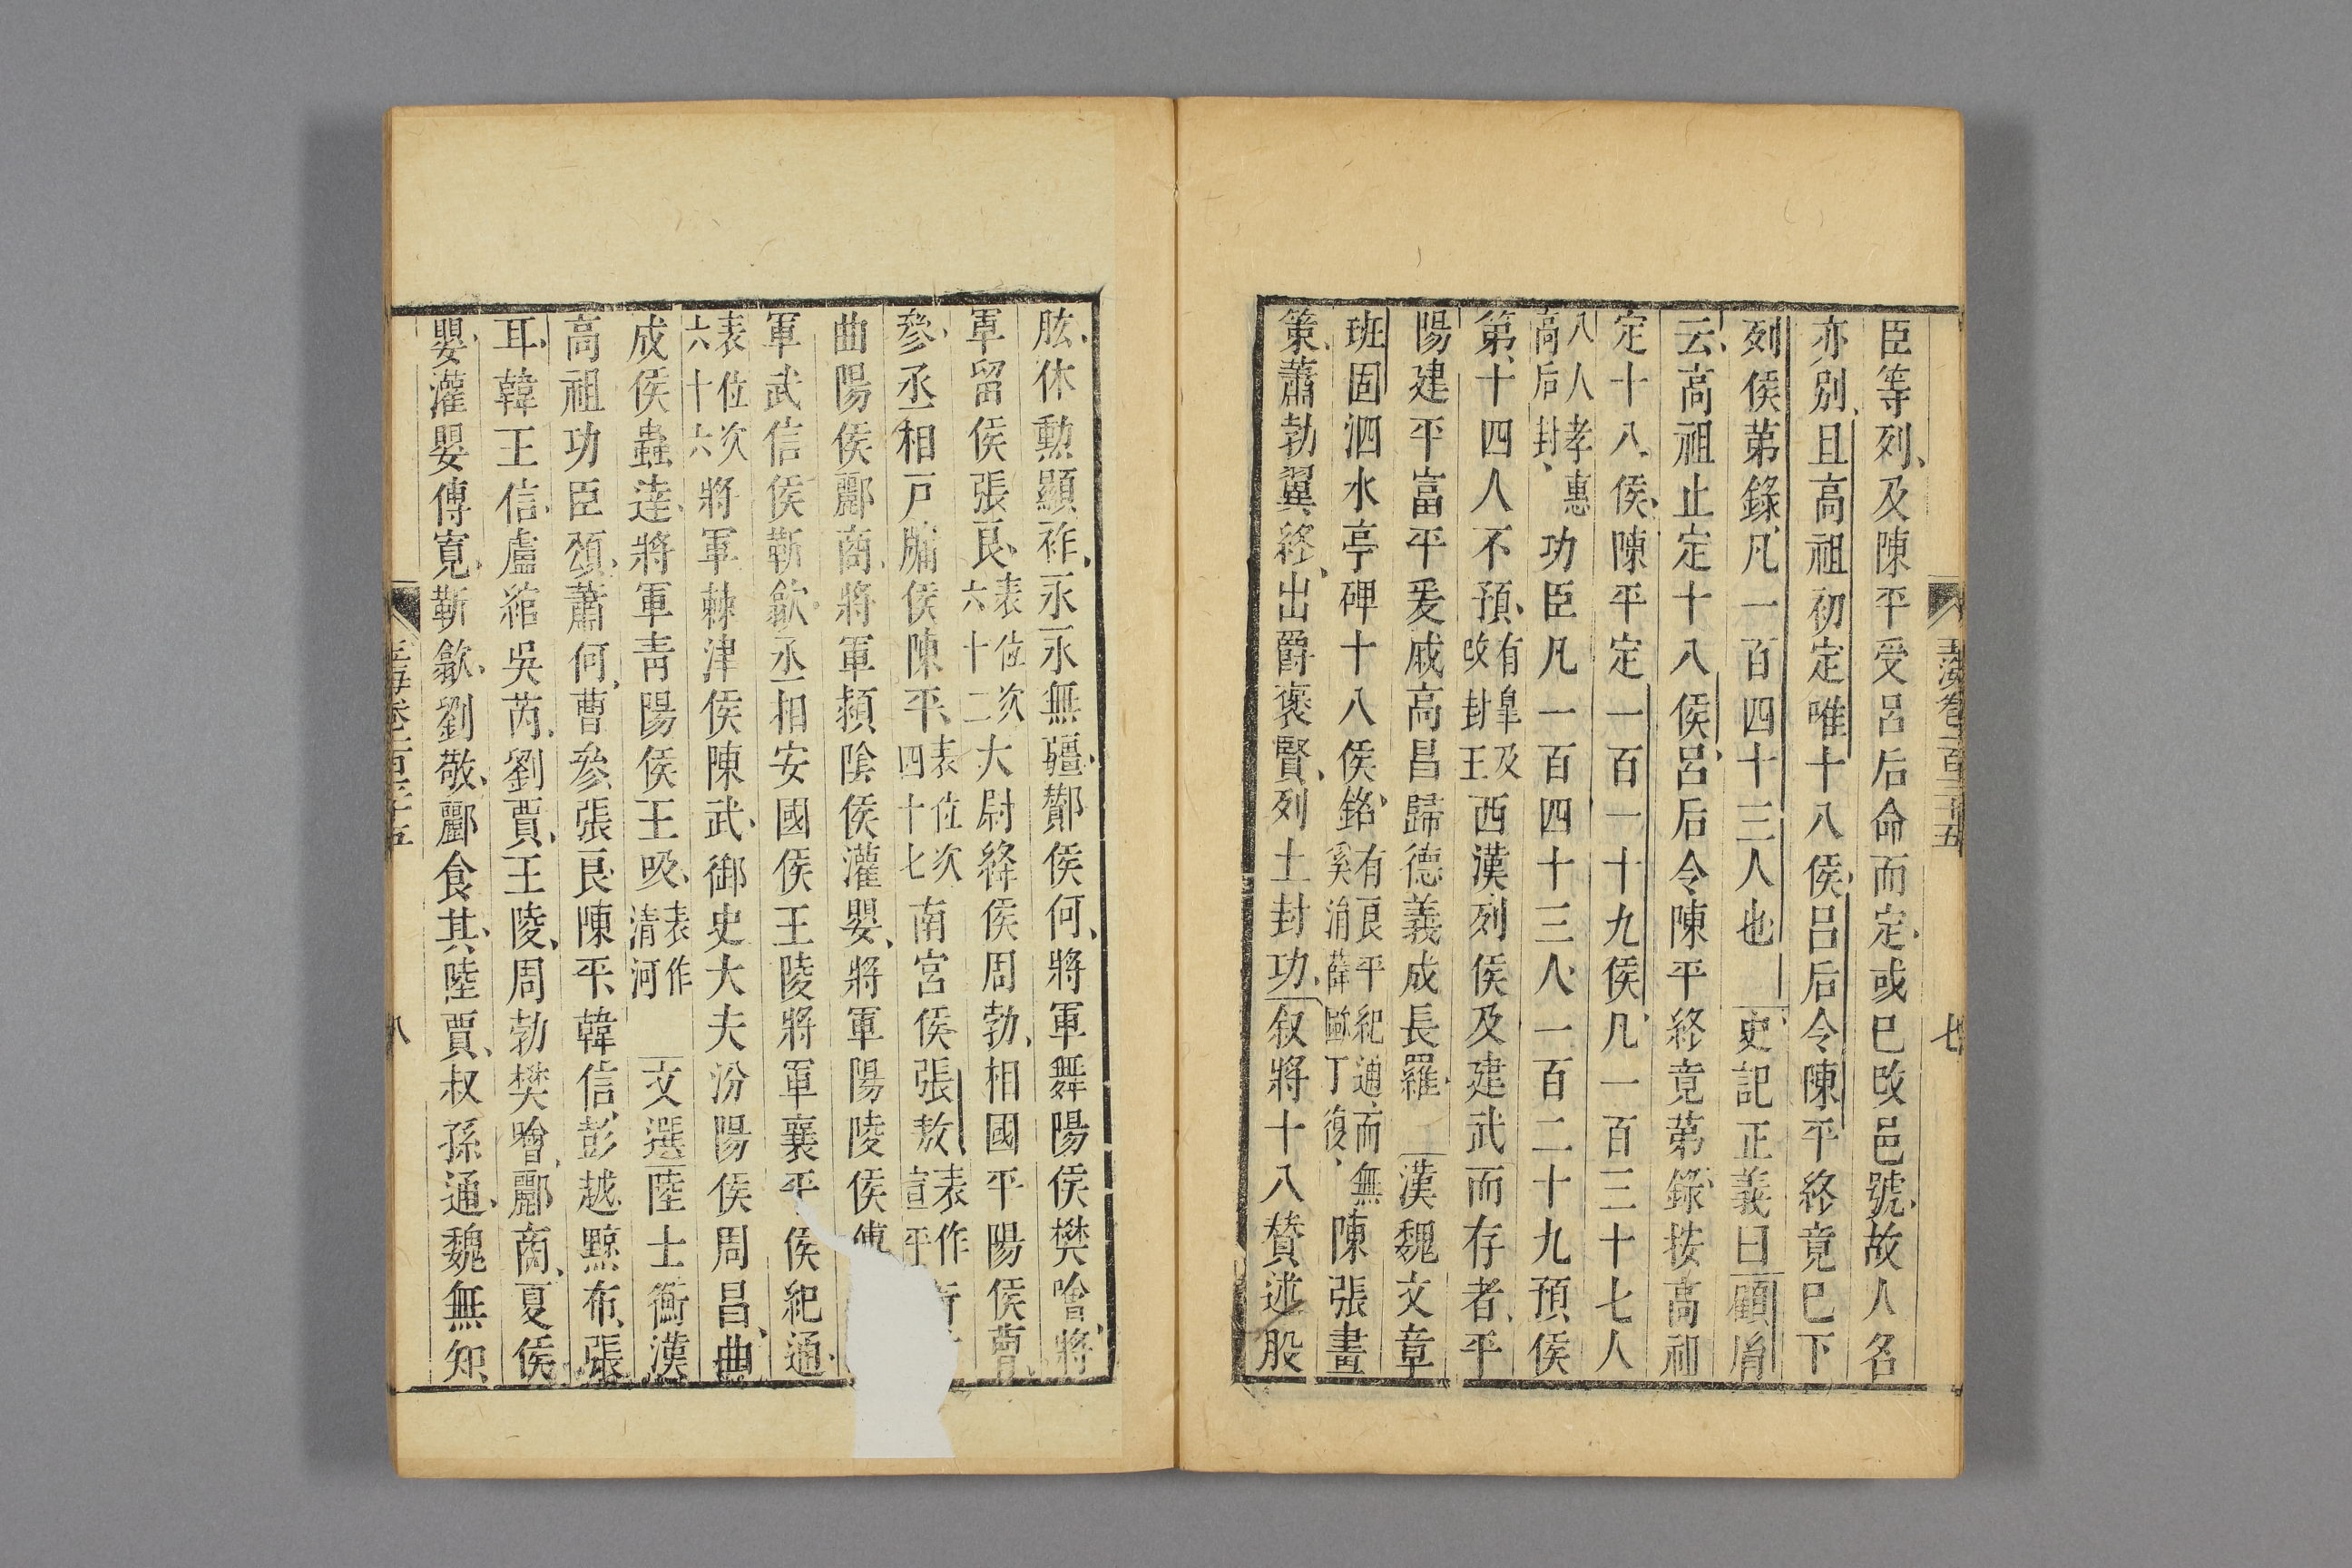 玉海卷一百三十五
七
臣等列、及陳平受呂后命而定、或已改邑號、故人名
亦別、且高祖初定唯十八侯、呂后令陳平終竟已下
列侯第錄、凡一百四十三人也、史記正義曰顧胤
云、高祖止定十八侯、呂后令陳平終竟第錄、按高祖
定十八侯、陳平定一百一十九侯、凡一百三十七人
八人孝惠高后封、功臣凡一百四十三人、一百二十九預侯
第、十四人不預、有皐及改封王西漢列侯及建武而存者、平
陽建平富平爰戚高昌歸德義成長羅、漢魏文章
班固泗水亭碑十八侯銘、有良平紀通、而無奚涓薛歐丁復、陳張畫
策、蕭勃翼終、出爵褒賢、列土封功、叙將十八贊述股
肱、休勲顯祚、永永無疆、酇侯何、將軍舞陽侯樊噲、將
軍留侯張良、表位次六十二大尉絳侯周勃、相國平陽侯曹
參、丞相戸牖侯陳平、表位次四十七南宮侯張敖、表作宣平
曲陽侯酈商、將軍潁陰侯灌嬰、將軍陽陵侯傅
軍武信侯靳歙、丞相安國侯王陵將軍襄平侯紀通、
表位次六十六將軍棘津侯陳武、御史大夫汾陽侯周昌、曲
成侯蟲達、將軍靑陽侯王吸、表作清河　文選陸士衡漢
高祖功臣頌、蕭何、曹參、張良、陳平、韓信、彭越、黥布、張
耳、韓王信、盧綰、吳芮、劉賈、王陵、周勃、樊噲、酈商、夏侯
嬰、灌嬰、傅寬、靳歙、劉敬、酈食其、陸賈、叔孫通、魏無知、
玉海卷一百三十五
八